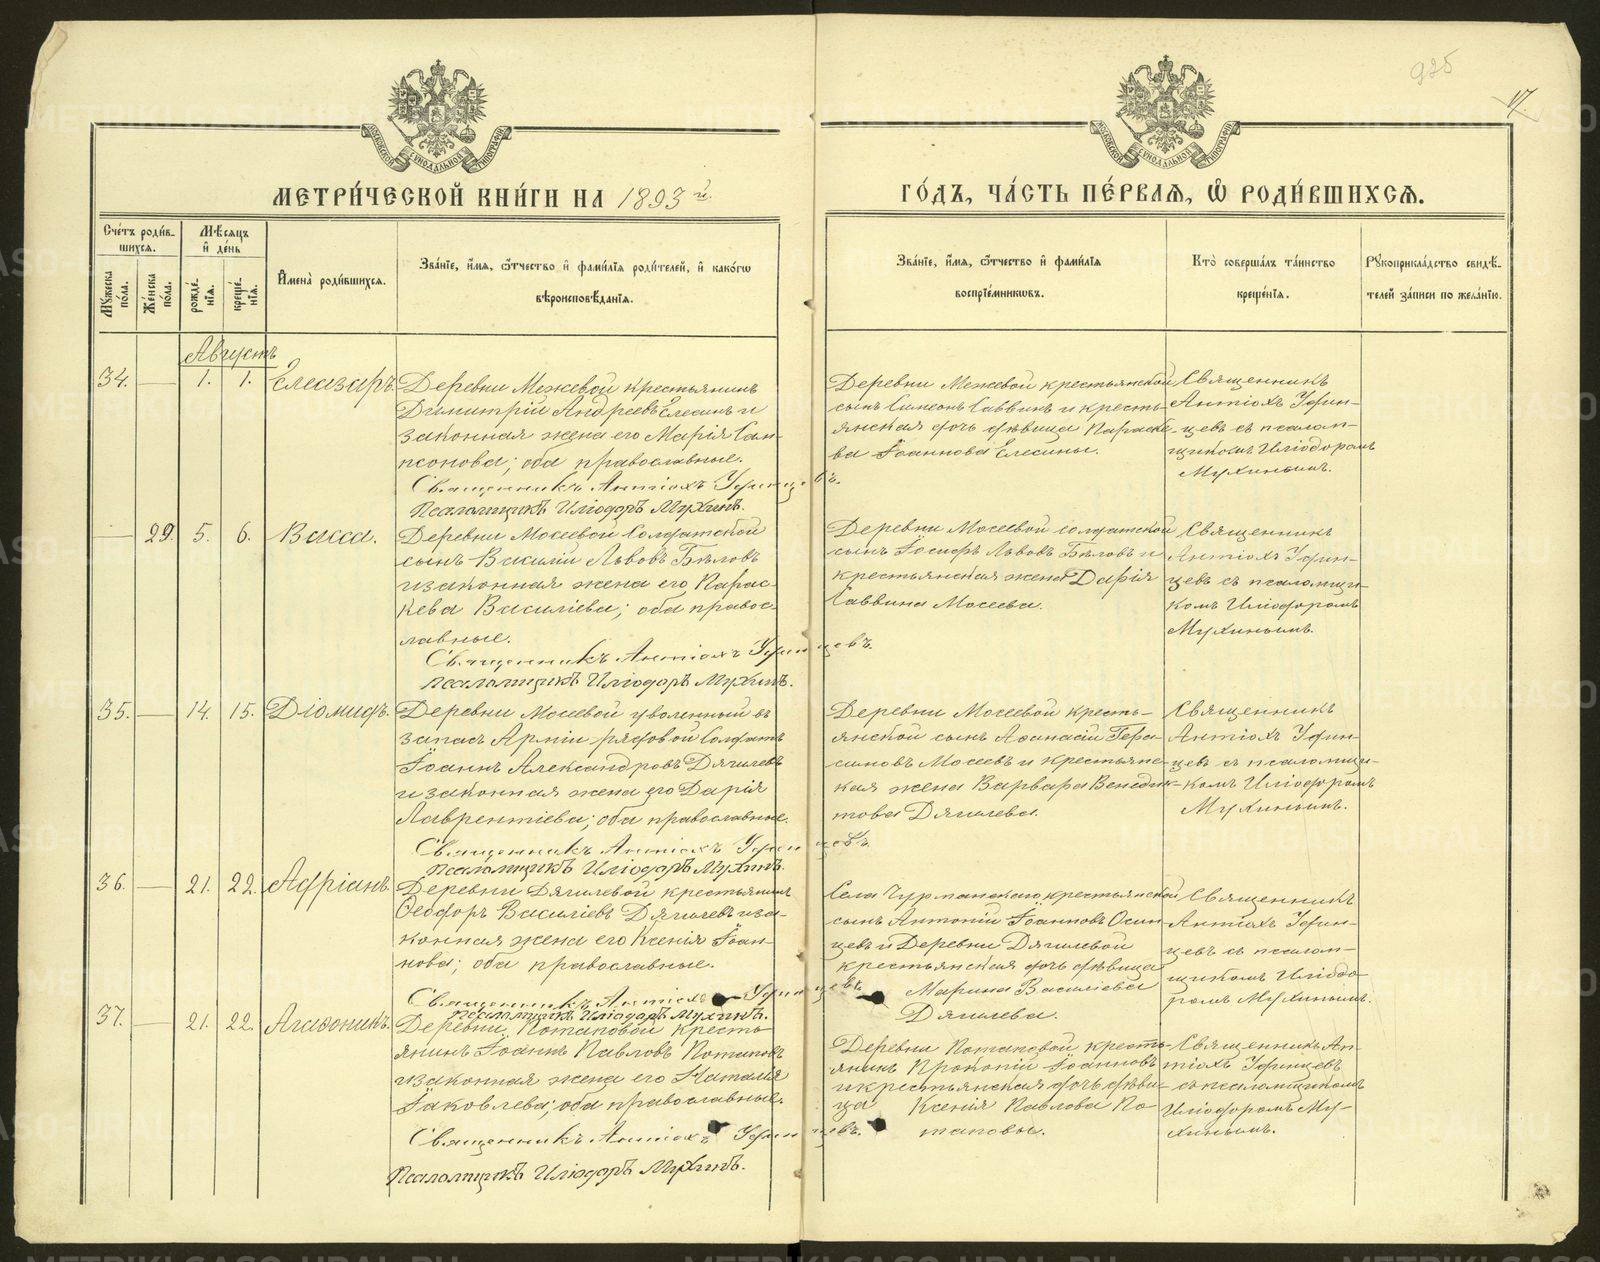 925
17
МОСКОВСКОЙ СѴНОДАЛЬНОЙ ТИПОГРАФІИ
МОСКОВСКОЙ СѴНОДАЛЬНОЙ ТИПОГРАФІИ
МЕТРИ́ЧЕСКОЙ КНИ́ГИ НА 1893 й.
ГО́ДЪ, ЧА́СТЬ ПЕ́РВАЯ, Ѿ РОДИ́ВШИХСЯ.
Сче́тъ роди́в-
шихся.
Му́жеска по́ла.
Же́нска по́ла.
Мѣ́сяцъ
и҆ де́нь
рожде́-
нїя.
креще́-
нїя.
И҆мена̀ роди́вшихся.
Зва́нїе, и҆́мя, ѻ҆́тчество и҆ фами́лїя роди́телей, и҆ како́гѡ
вѣроисповѣ́данїя.
Зва́нїе, и҆́мя, ѻ҆́тчество и҆ фами́лїя
воспрїе́мниковъ.
Кто̀ соверша́лъ та́инство
креще́нїя.
Рꙋкоприкла́дство свидѣ́-
телей за́писи по жела́нїю.
Августъ
34. — 1. 1. Елеазаръ.
Деревни Межевой крестьянинъ
Димитрій Андреевъ Елесинъ и
законная жена его Марія Сам-
псонова; оба православные.
Священникъ Антіохъ Уфинцевъ.
Псаломщикъ Иліодоръ Мухинъ.
Деревни Межевой крестьянской
сынъ Симеонъ Саввинъ и кресть-
янская дочь дѣвица Параске-
ва Іоаннова Елесины.
Священникъ
Антіохъ Уфин-
цевъ съ псалом-
щикомъ Иліодоромъ
Мухинымъ.
— 29. 5. 6. Васса.
Деревни Мосеевой Солдатской
сынъ Василій Львовъ Бѣловъ
и законная жена его Парас-
кева Василіева; оба правос-
лавные.
Священникъ Антіохъ Уфинцевъ.
Псаломщикъ Иліодоръ Мухинъ.
Деревни Мосеевой солдатской
сынъ Іосифъ Львовъ Бѣловъ и
крестьянская жена Дарія
Саввина Мосеева.
Священникъ
Антіохъ Уфин-
цевъ съ псаломщи-
комъ Иліодоромъ
Мухинымъ.
35. — 14. 15. Діомидъ.
Деревни Мосеевой уволенный въ
запасъ Арміи рядовой Солдатъ
Іоаннъ Александровъ Дягилевъ
и законная жена его Дарія
Лаврентіева; оба православные.
Священникъ Антіохъ Уфинцевъ.
Псаломщикъ Иліодоръ Мухинъ.
Деревни Мосеевой кресть-
янской сынъ Афанасій Гера-
симовъ Мосеевъ и крестьянс-
кая жена Варвара Венедик-
това Дягилева.
Священникъ
Антіохъ Уфин-
цевъ съ псаломщи-
комъ Иліодоромъ
Мухинымъ.
36. — 21. 22. Адріанъ.
Деревни Дягилевой крестьянинъ
Ѳеодоръ Василіевъ Дягилевъ и за-
конная жена его Ксенія Іоан-
нова; оба православные.
Священникъ Антіохъ Уфинцевъ.
Псаломщикъ Иліодоръ Мухинъ.
Села Чурманскаго крестьянской
сынъ Антоній Іоанновъ Осин-
цевъ и Деревни Дягилевой
крестьянская дочь дѣвица
Марина Василіева
Дягилева.
Священникъ
Антіохъ Уфин-
цевъ съ псалом-
щикомъ Иліодо-
ромъ Мухинымъ.
37. — 21. 22. Агаѳоникъ.
Деревни Потаповой кресть-
янинъ Іоаннъ Павловъ Потаповъ
и законная жена его Наталія
Іаковлева; оба православные.
Священникъ Антіохъ Уфинцевъ.
Псаломщикъ Иліодоръ Мухинъ.
Деревни Потаповой кресть-
янинъ Прокопій Іоанновъ
и крестьянская дочь дѣви-
ца Ксенія Павлова По-
таповы.
Священникъ Ан-
тіохъ Уфинцевъ
съ псаломщикомъ
Иліодоромъ Му-
хинымъ.
METRIKI.GASO-URAL.RU